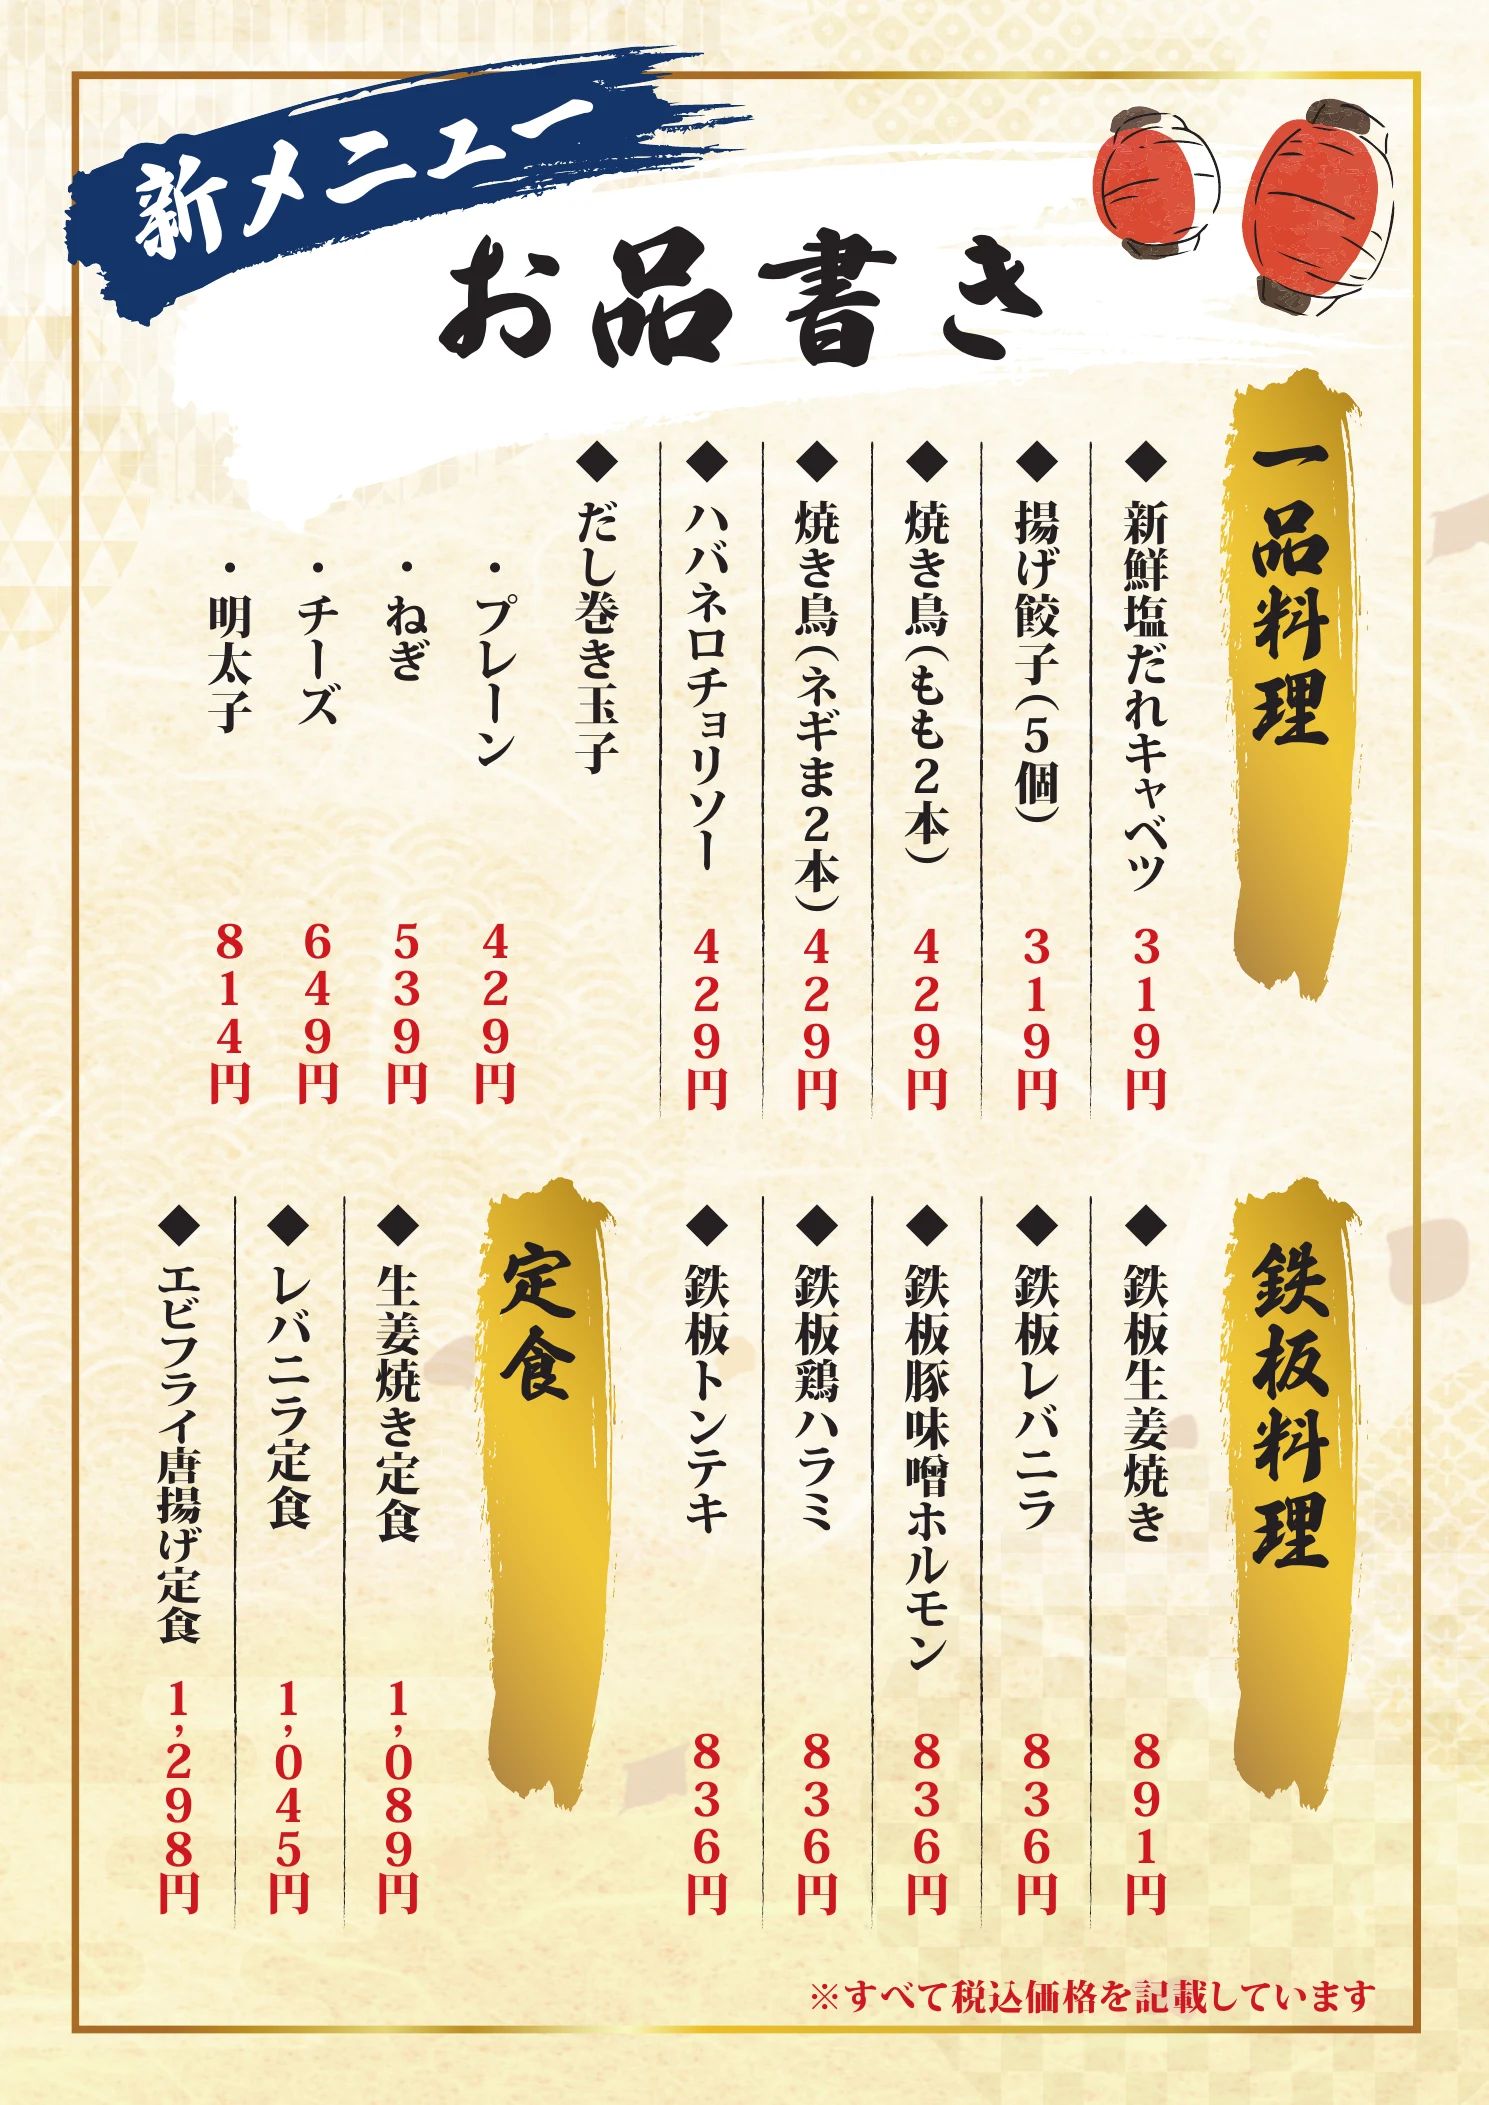 新メニュー
お品書き
一品料理
◆新鮮塩だれキャベツ 319円
◆揚げ餃子(5個) 319円
◆焼き鳥(もも2本) 429円
◆焼き鳥(ネギま2本) 429円
◆ハバネロチョリソー 429円
◆だし巻き玉子
・プレーン 429円
・ねぎ 539円
・チーズ 649円
・明太子 814円
鉄板料理
◆鉄板生姜焼き 891円
◆鉄板レバニラ 836円
◆鉄板豚味噌ホルモン 836円
◆鉄板鶏ハラミ 836円
◆鉄板トンテキ 836円
定食
◆生姜焼き定食 1,089円
◆レバニラ定食 1,045円
◆エビフライ唐揚げ定食 1,298円
※すべて税込価格を記載しています